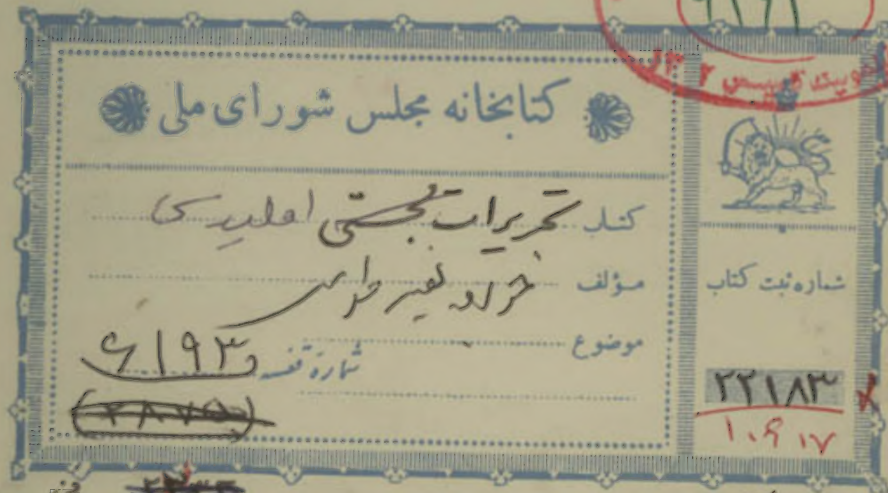 کتابخانه مجلس شورای ملی
کتاب تحریرات مجسطی اقلیدس
مؤلف خواجه نصیر طوسی
موضوع
شمارهٔ قفسه ۶۱۹۳
شماره ثبت کتاب
۲۲۱۸۳
۱۰۶۱۷